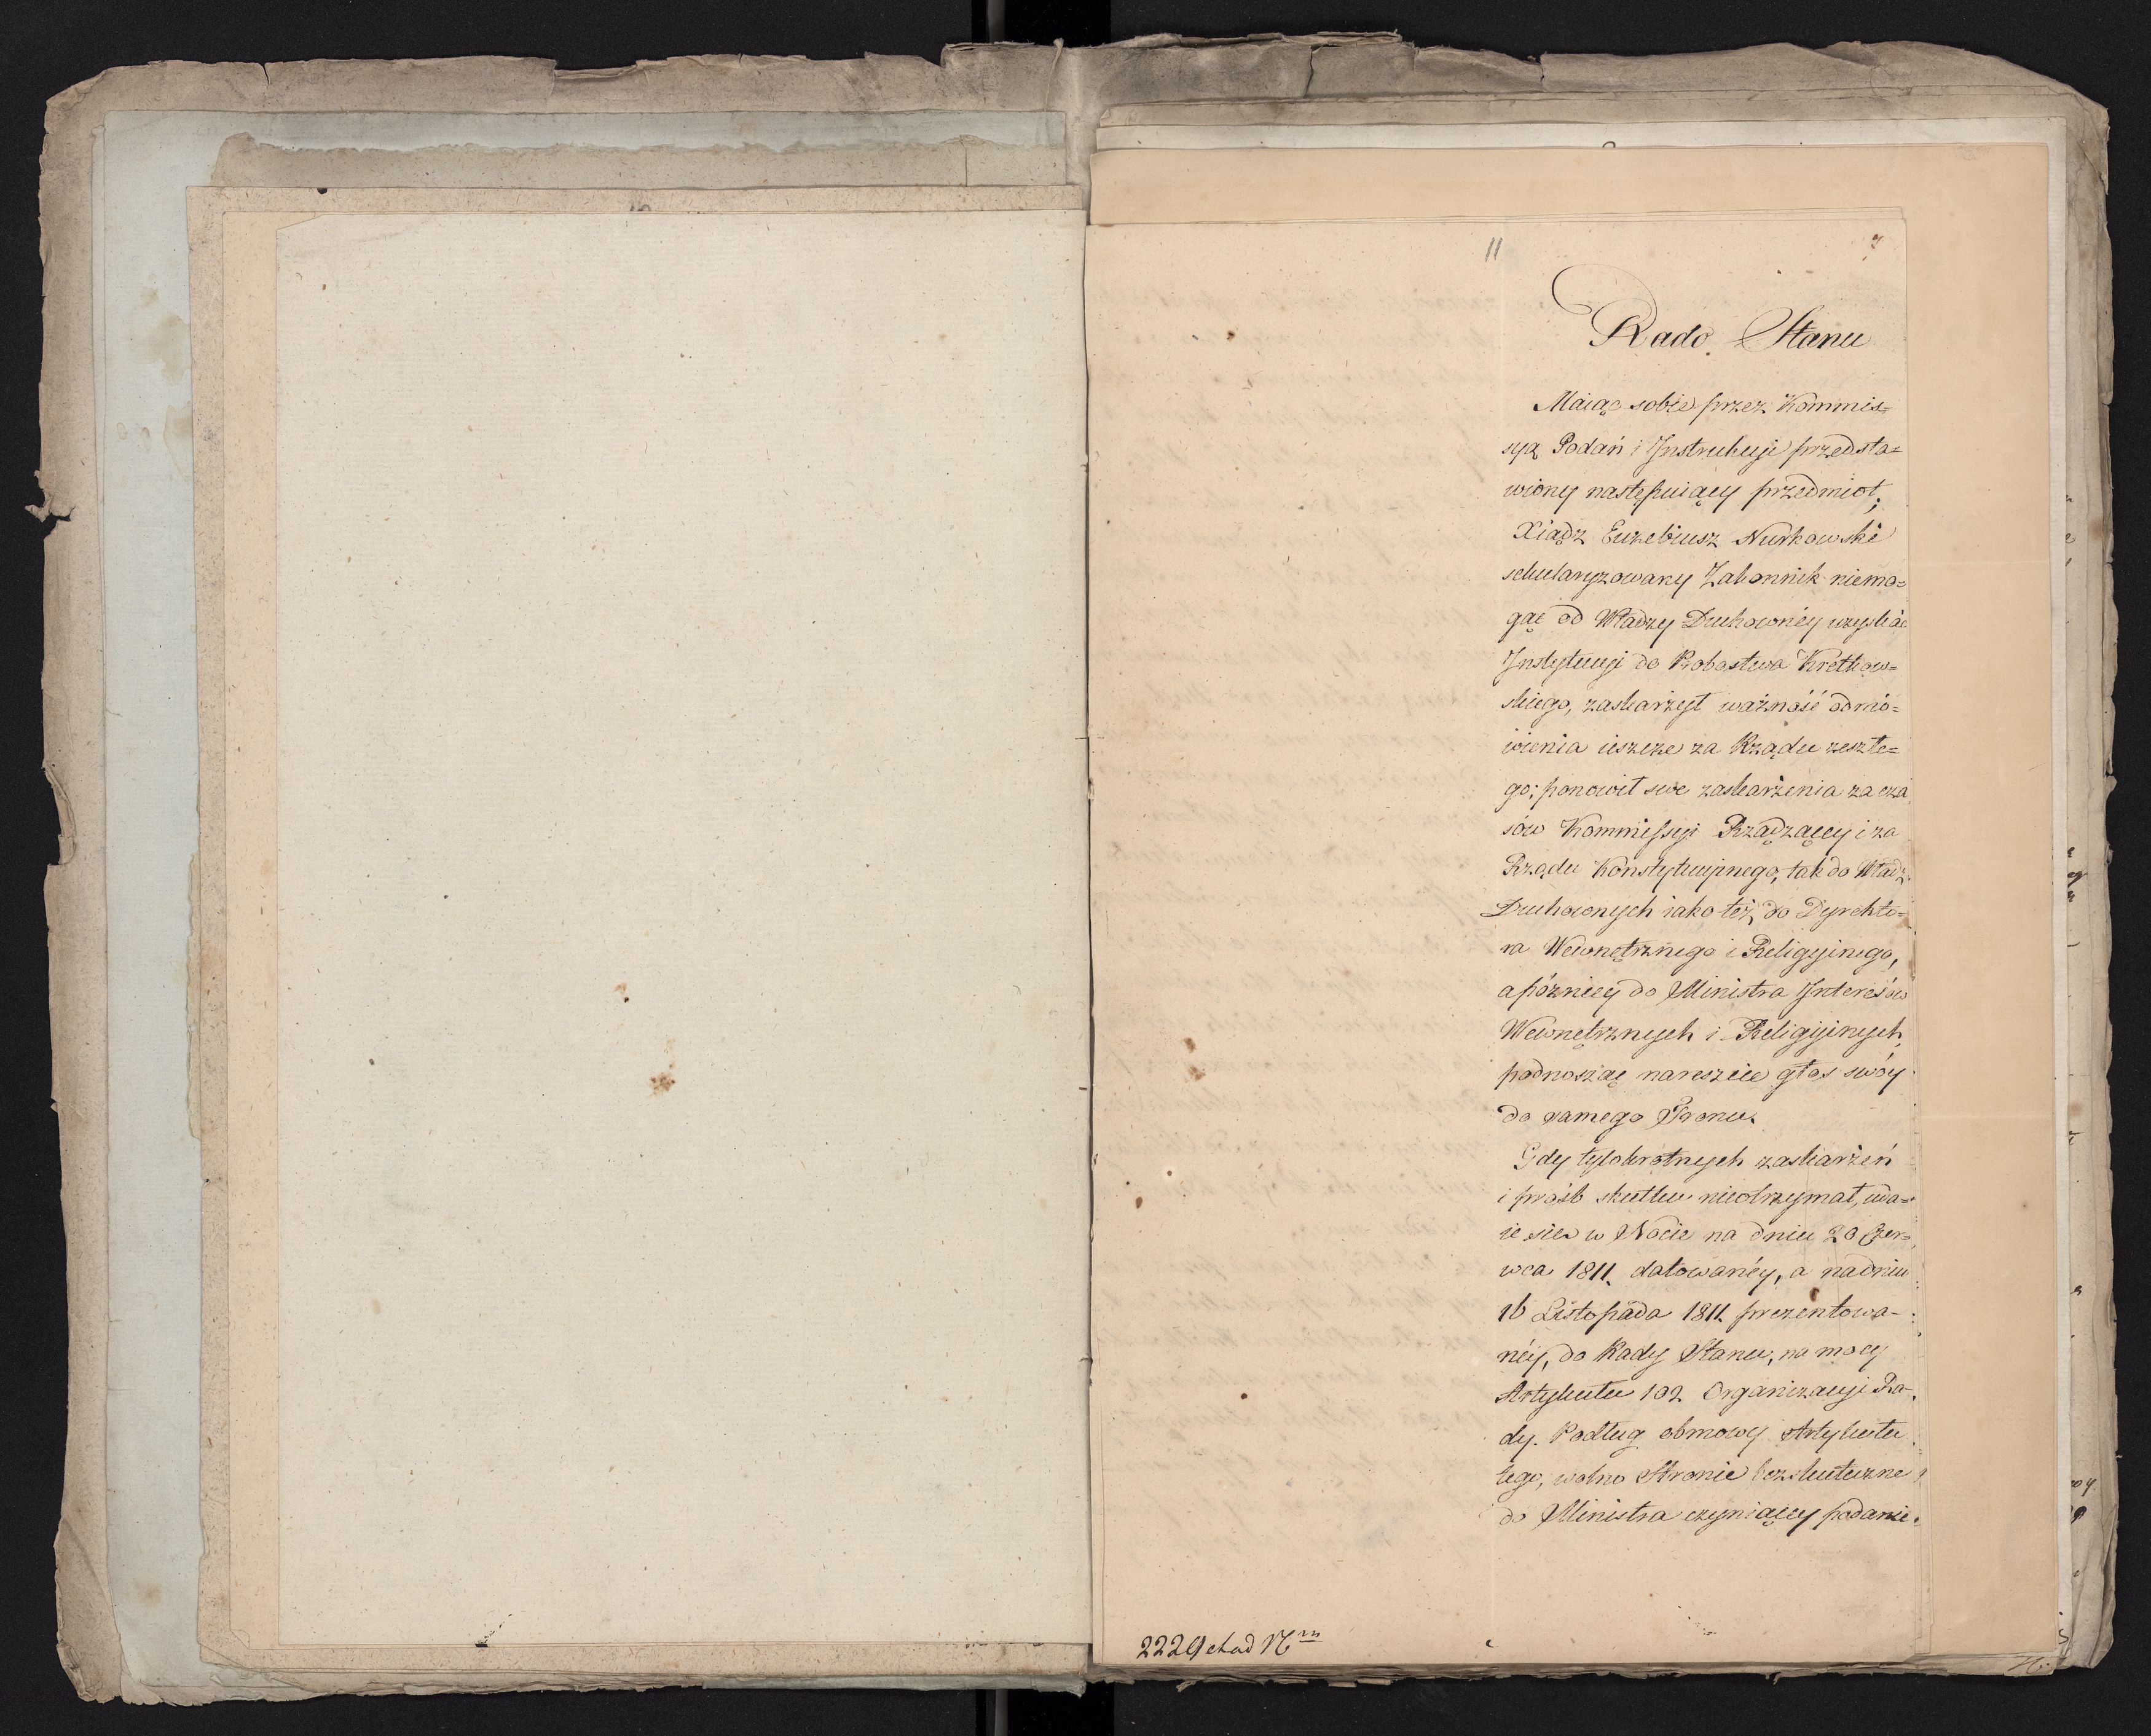 11
7
Rado Stanu
Maiąc sobie przez Kommis=
syą Podań i Jnstrukcyi przedsta=
wiony następuiący przedmiot;
Xiądz Euzebiusz Nurkowski
sekularyzowany Zakonnik niemo=
gąc od Władzy Duchownéy uzyskać
Jnstytucyi do Probostwa Kretkow=
skiego, zaskarżył ważność odmó=
wienia ieszcze za Rządu zeszłe=
go; ponowił swe zaskarżenia za cza
sów Kommissyi Rządzącey i za
Rządu Konstytucyinego, tak do Władz
Duchownych iako też do Dyrekto=
ra Wewnętrznego i Religyinego,
a późniey do Ministra Jnteresów
Wewnętrznych i Religyinych,
podnosząc nareszcie głos swóy
do samego Tronu.
Gdy tylokrotnych zaskarżeń
i prośb skutku nieotrzymał, uda=
ie sie w Nocie na dniu 20 Czer=
wca 1811. datowanéy, a na dniu
16 Listopada 1811. prezentowa-
néy, do Rady Stanu, na mocy
Artykułu 102 Organizacyi Ra-
dy. Podług obmowy Artykułu
tego, wolno Stronie bezskuteczne
do Ministra czyniącey podanie.
2229 et ad N<sup>m</sup>